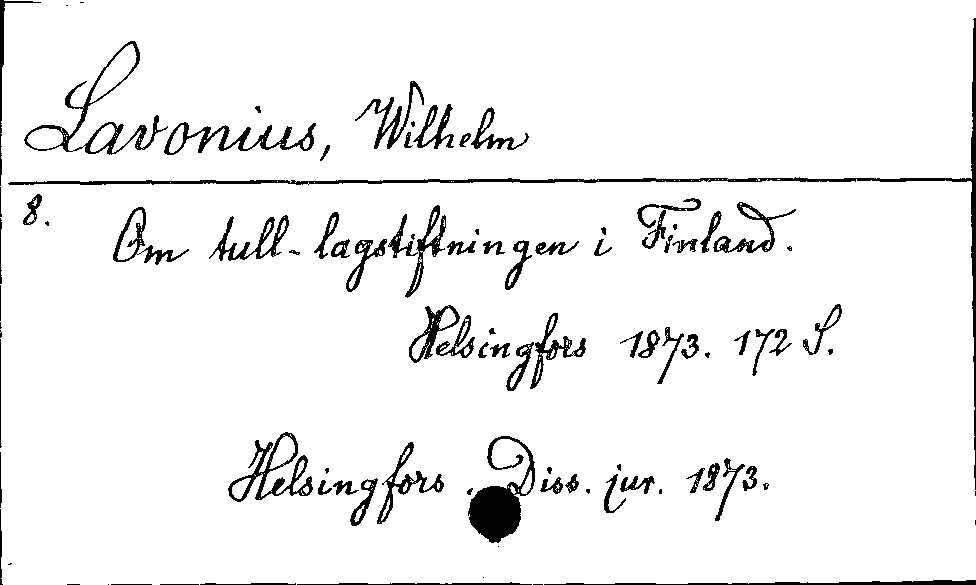 Lavonius, Wilhelm
8.
Om tull-lagstiftningen i Finland.
Helsingfors 1873. 172 S.
Helsingfors. Diss. jur. 1873.